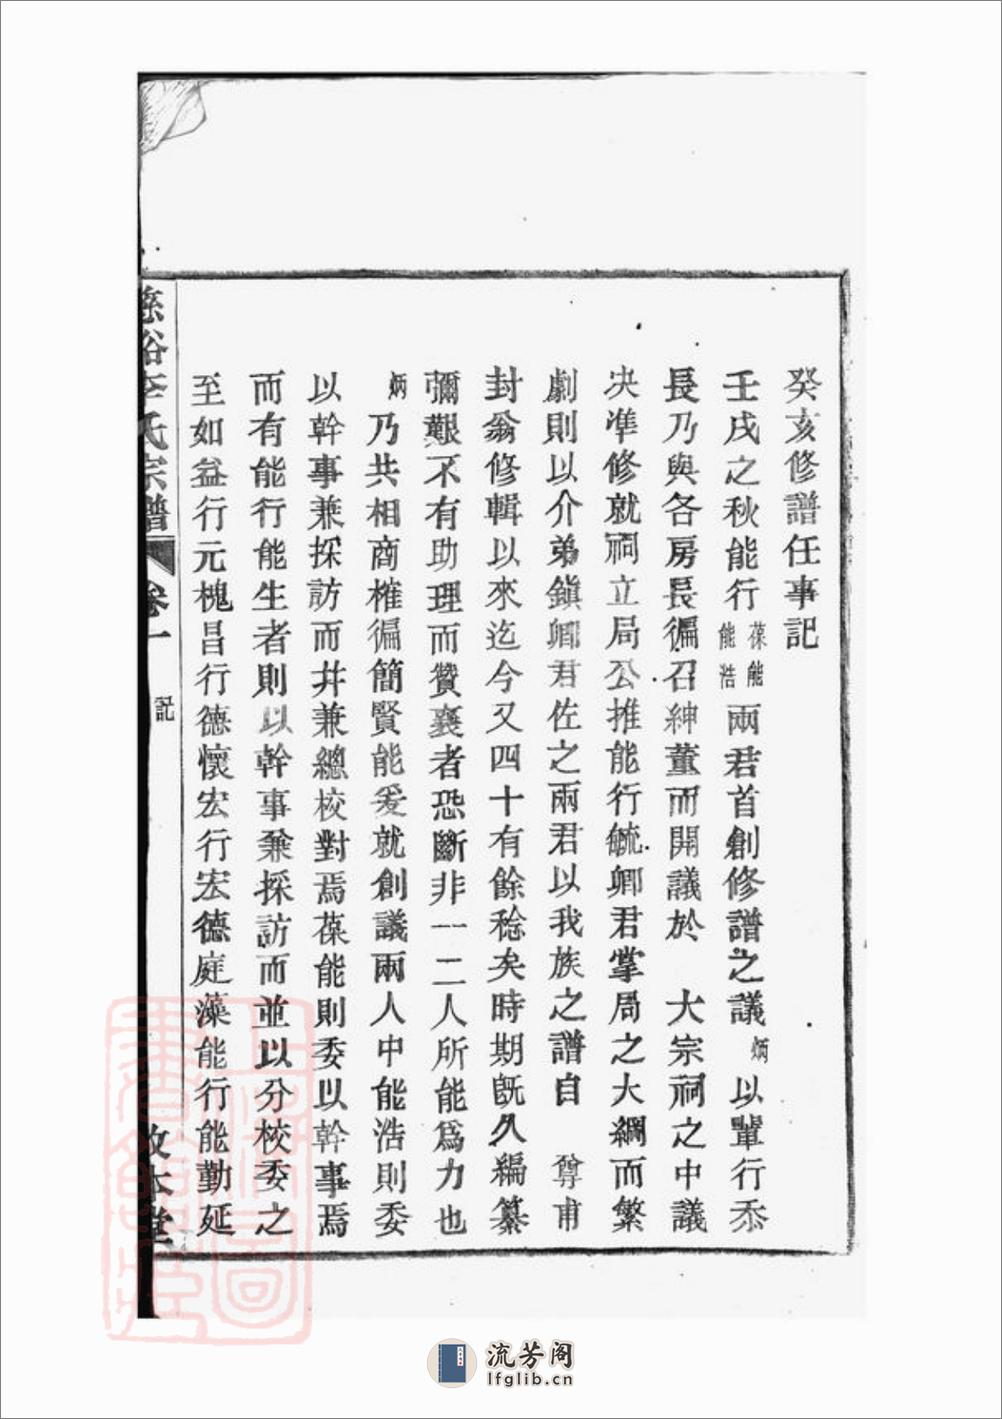 癸亥修譜任事記
壬戌之秋能行葆能能浩兩君首創修譜之議炳以輩行忝
長乃與各房長徧召紳董而開議於　大宗祠之中議
决準修就祠立局公推能行毓卿君掌局之大綱而繁
劇則以介弟鎭卿君佐之兩君以我族之譜自　尊甫
封翁修輯以來迄今又四十有餘稔矣時期旣久編纂
彌艱不有助理而贊襄者恐斷非一二人所能爲力也
炳乃共相商榷徧簡賢能爰就創議兩人中能浩則委
以幹事兼採訪而幷兼總校對焉葆能則委以幹事焉
而有能行能生者則以幹事兼採訪而並以分校委之
至如益行元槐昌行德懷宏行宏德庭藻能行能勤延
谷李氏宗譜
卷一
記
敦本堂
流芳阁
lfglib.cn